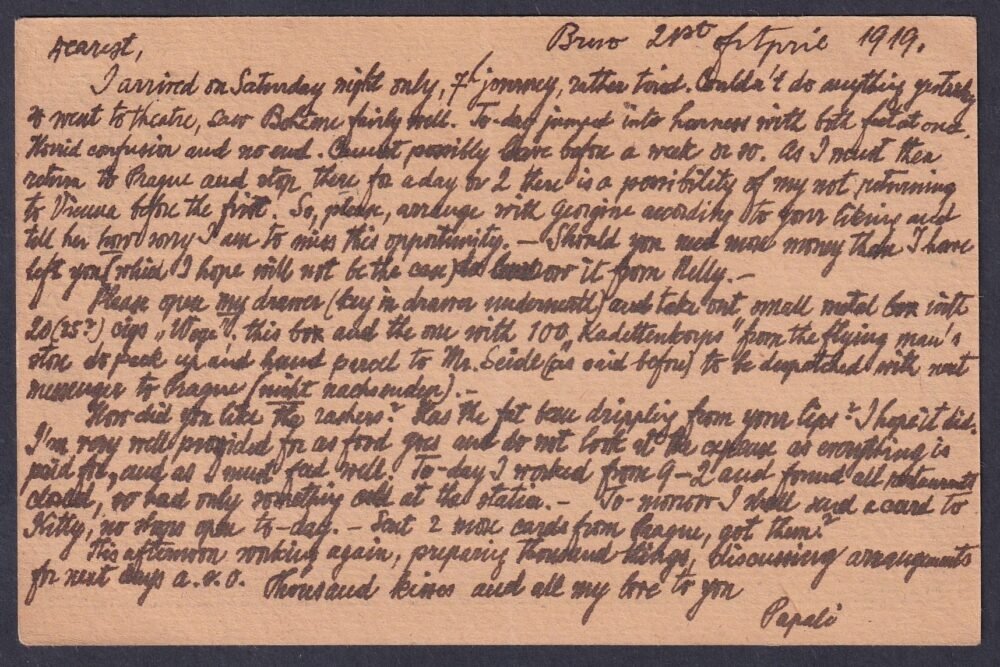 Dearest, Brno 21st of April 1919.
I arrived on Saturday night only, 7h journey, rather tired. Couldn't do anything yesterday
& went to theatre, saw Bohème fairly well. To-day jumped into harness with both feet at once.
Horrid confusion and no end. Cannot possibly leave before a week or so. As I must then
return to Prague and stop there for a day or 2 there is a possibility of my not returning
to Vienna before the first. So, please, arrange with Georgine according to your liking and
tell her how sorry I am to miss this opportunity. — Should you need more money than I have
left you (which I hope will not be the case) borrow it from Nelly. —
Please open my drawer (key in drawer underneath) and take out small metal box with
20 (25?) cigs „ ". this box and the one with 100 „Kadettenkorps" from the flying man's
store do pack up and hand parcel to Mr. Seidel (as said before) to be despatched with next
messenger to Prague (nicht nachsenden). —
How did you like the rashers? Has the fat been dripping from your lips? I hope it did.
I'm very well provided for as food goes and do not look at the expense as everything is
paid for, and as I must feed well. To-day I worked from 9-2 and found all restaurants
closed, so had only something cold at the station. — To-morrow I shall send a card to
Kitty, no shops open to-day. — Sent 2 more cards from Prague, got them?
This afternoon working again, preparing thousand things, discussing arrangements
for next days a.s.o. Thousand kisses and all my love to you
Papali